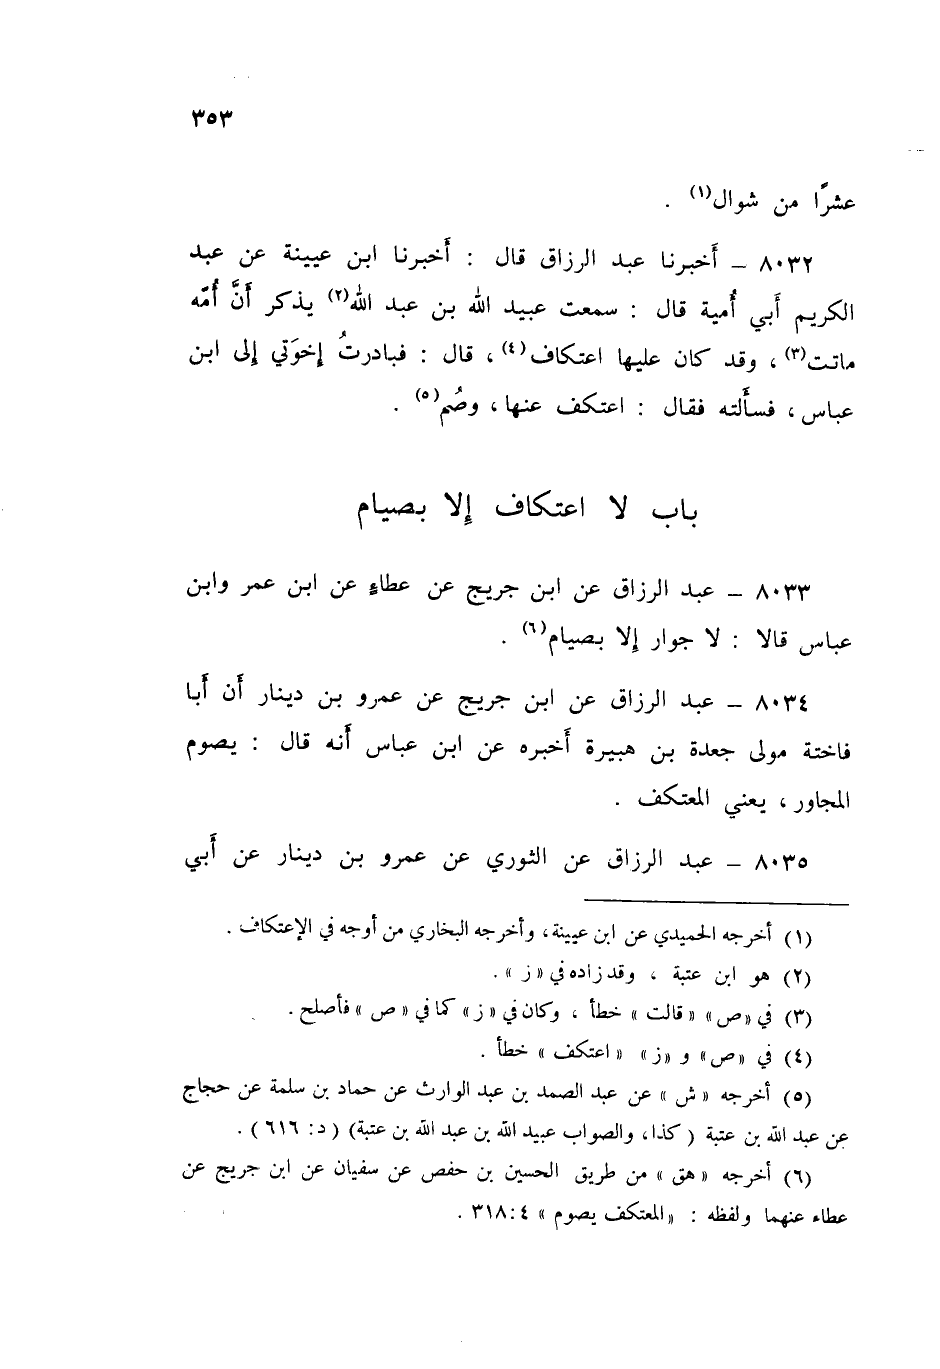 ٣٥٣
عشرًا من شوال(١) .
٨٠٣٢ – أَخبرنا عبد الرزاق قال : أَخبرنا ابن عيينة عن عبد
الكريم أَبي أُمية قال : سمعت عبيد الله بن عبد الله(٢) يذكر أَنَّ أُمّه
ماتت(٣) ، وقد كان عليها اعتكاف(٤) ، قال : فبادرتُ إِخوَتي إِلى ابن
عباس ، فسأَلته فقال : اعتكف عنها ، وصُم(٥) .
باب لا اعتكاف إِلا بصيام
٨٠٣٣ – عبد الرزاق عن ابن جريج عن عطاءٍ عن ابن عمر وابن
عباس قالا : لا جوار إِلا بصيام(٦) .
٨٠٣٤ – عبد الرزاق عن ابن جريج عن عمرو بن دينار أَن أَبا
فاختة مولى جعدة بن هبيرة أَخبره عن ابن عباس أَنه قال : يصوم
المجاور ، يعني المعتكف .
٨٠٣٥ – عبد الرزاق عن الثوري عن عمرو بن دينار عن أَبي
(١) أخرجه الحميدي عن ابن عيينة ، وأخرجه البخاري من أوجه في الإعتكاف .
(٢) هو ابن عتبة ، وقد زاده في « ز » .
(٣) في « ص » « قالت » خطأ ، وكان في « ز » كما في « ص » فأصلح .
(٤) في « ص » و « ز » « اعتكف » خطأ .
(٥) أخرجه « ش » عن عبد الصمد بن عبد الوارث عن حماد بن سلمة عن حجاج
عن عبد الله بن عتبة ( كذا ، والصواب عبيد الله بن عبد الله بن عتبة) ( د : ٦١٦ ) .
(٦) أخرجه « هق » من طريق الحسين بن حفص عن سفيان عن ابن جريج عن
عطاء عنهما ولفظه : « المعتكف يصوم » ٤ : ٣١٨ .